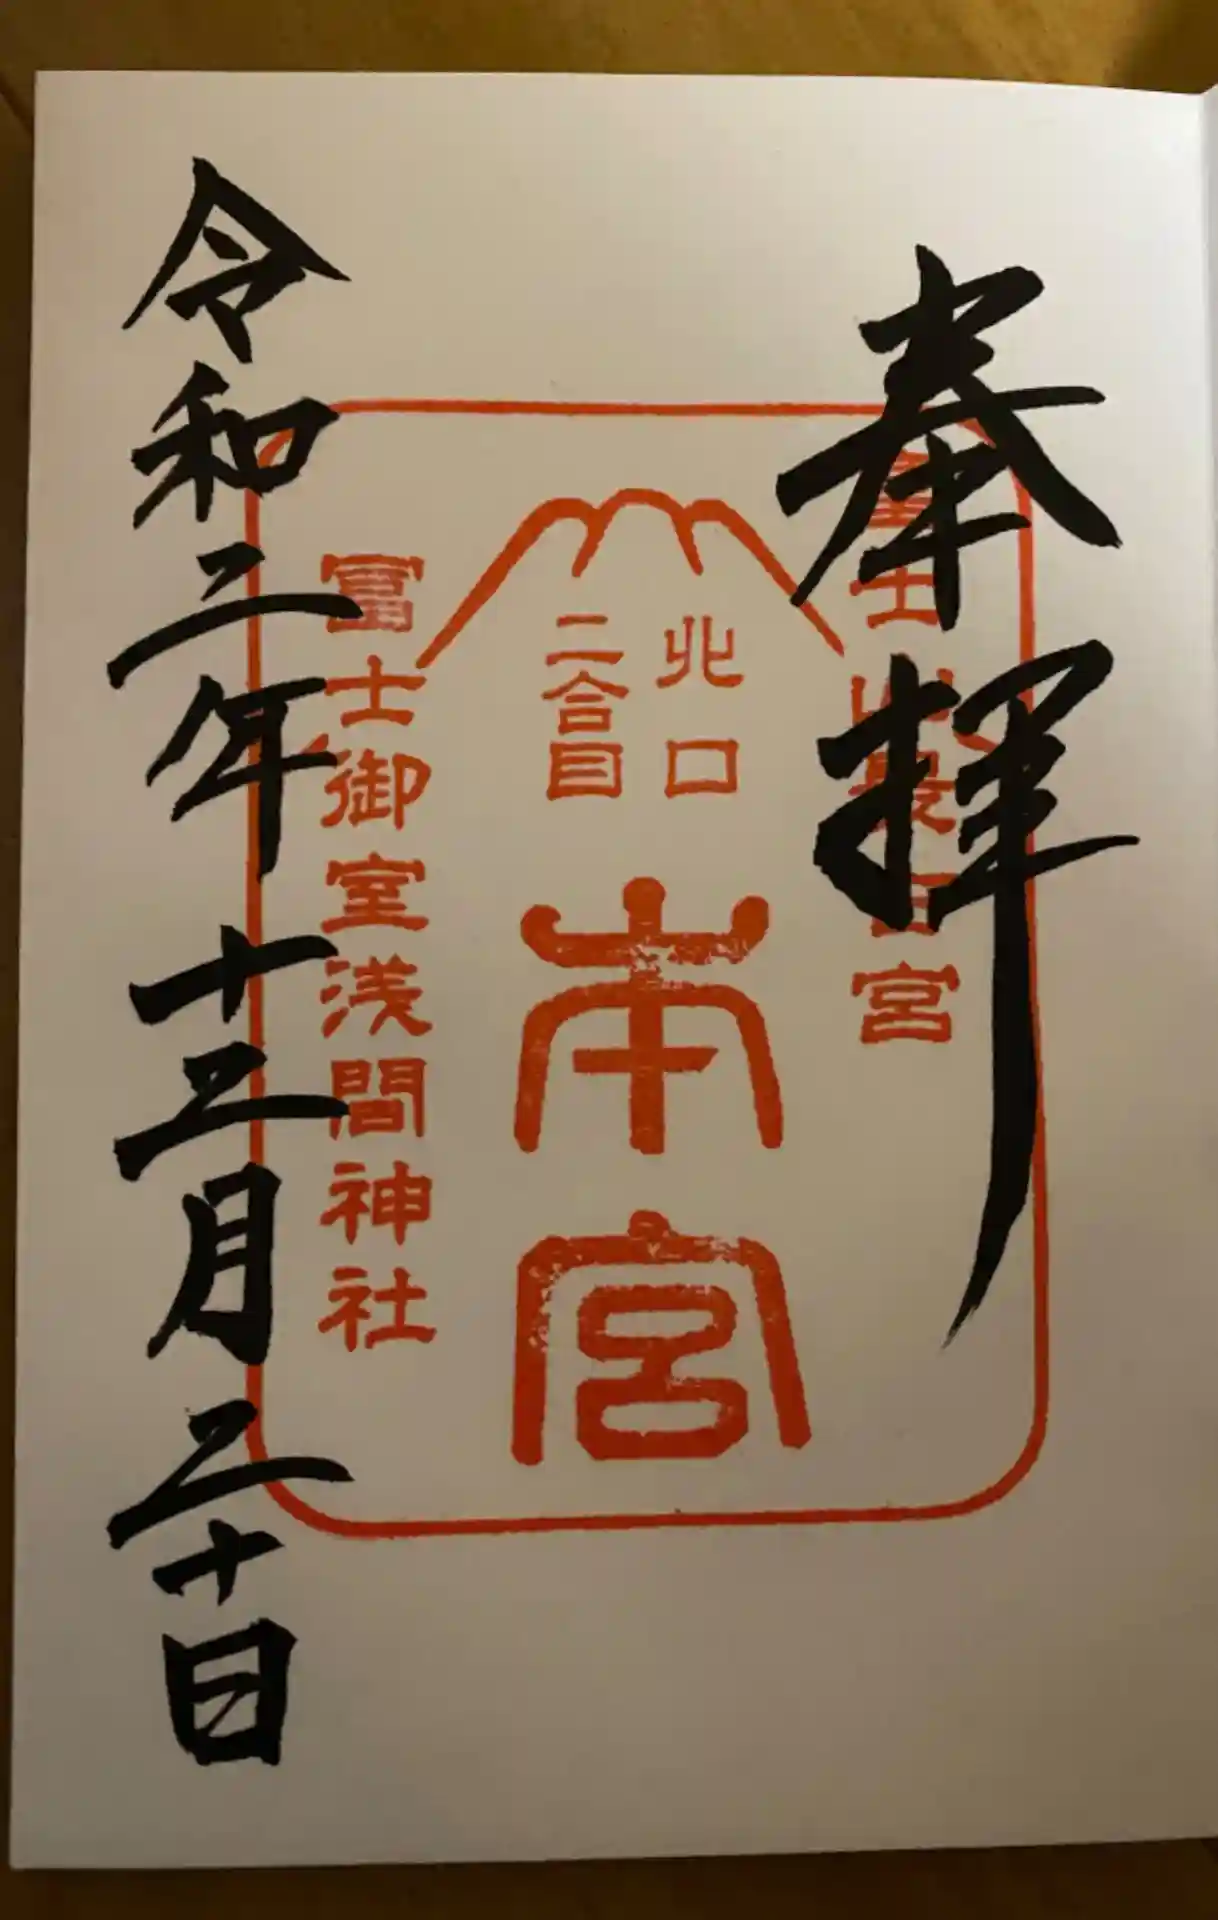 奉拝
富士山最古宮
北口
二合目
本宮
冨士御室浅間神社
令和三年十二月二十日